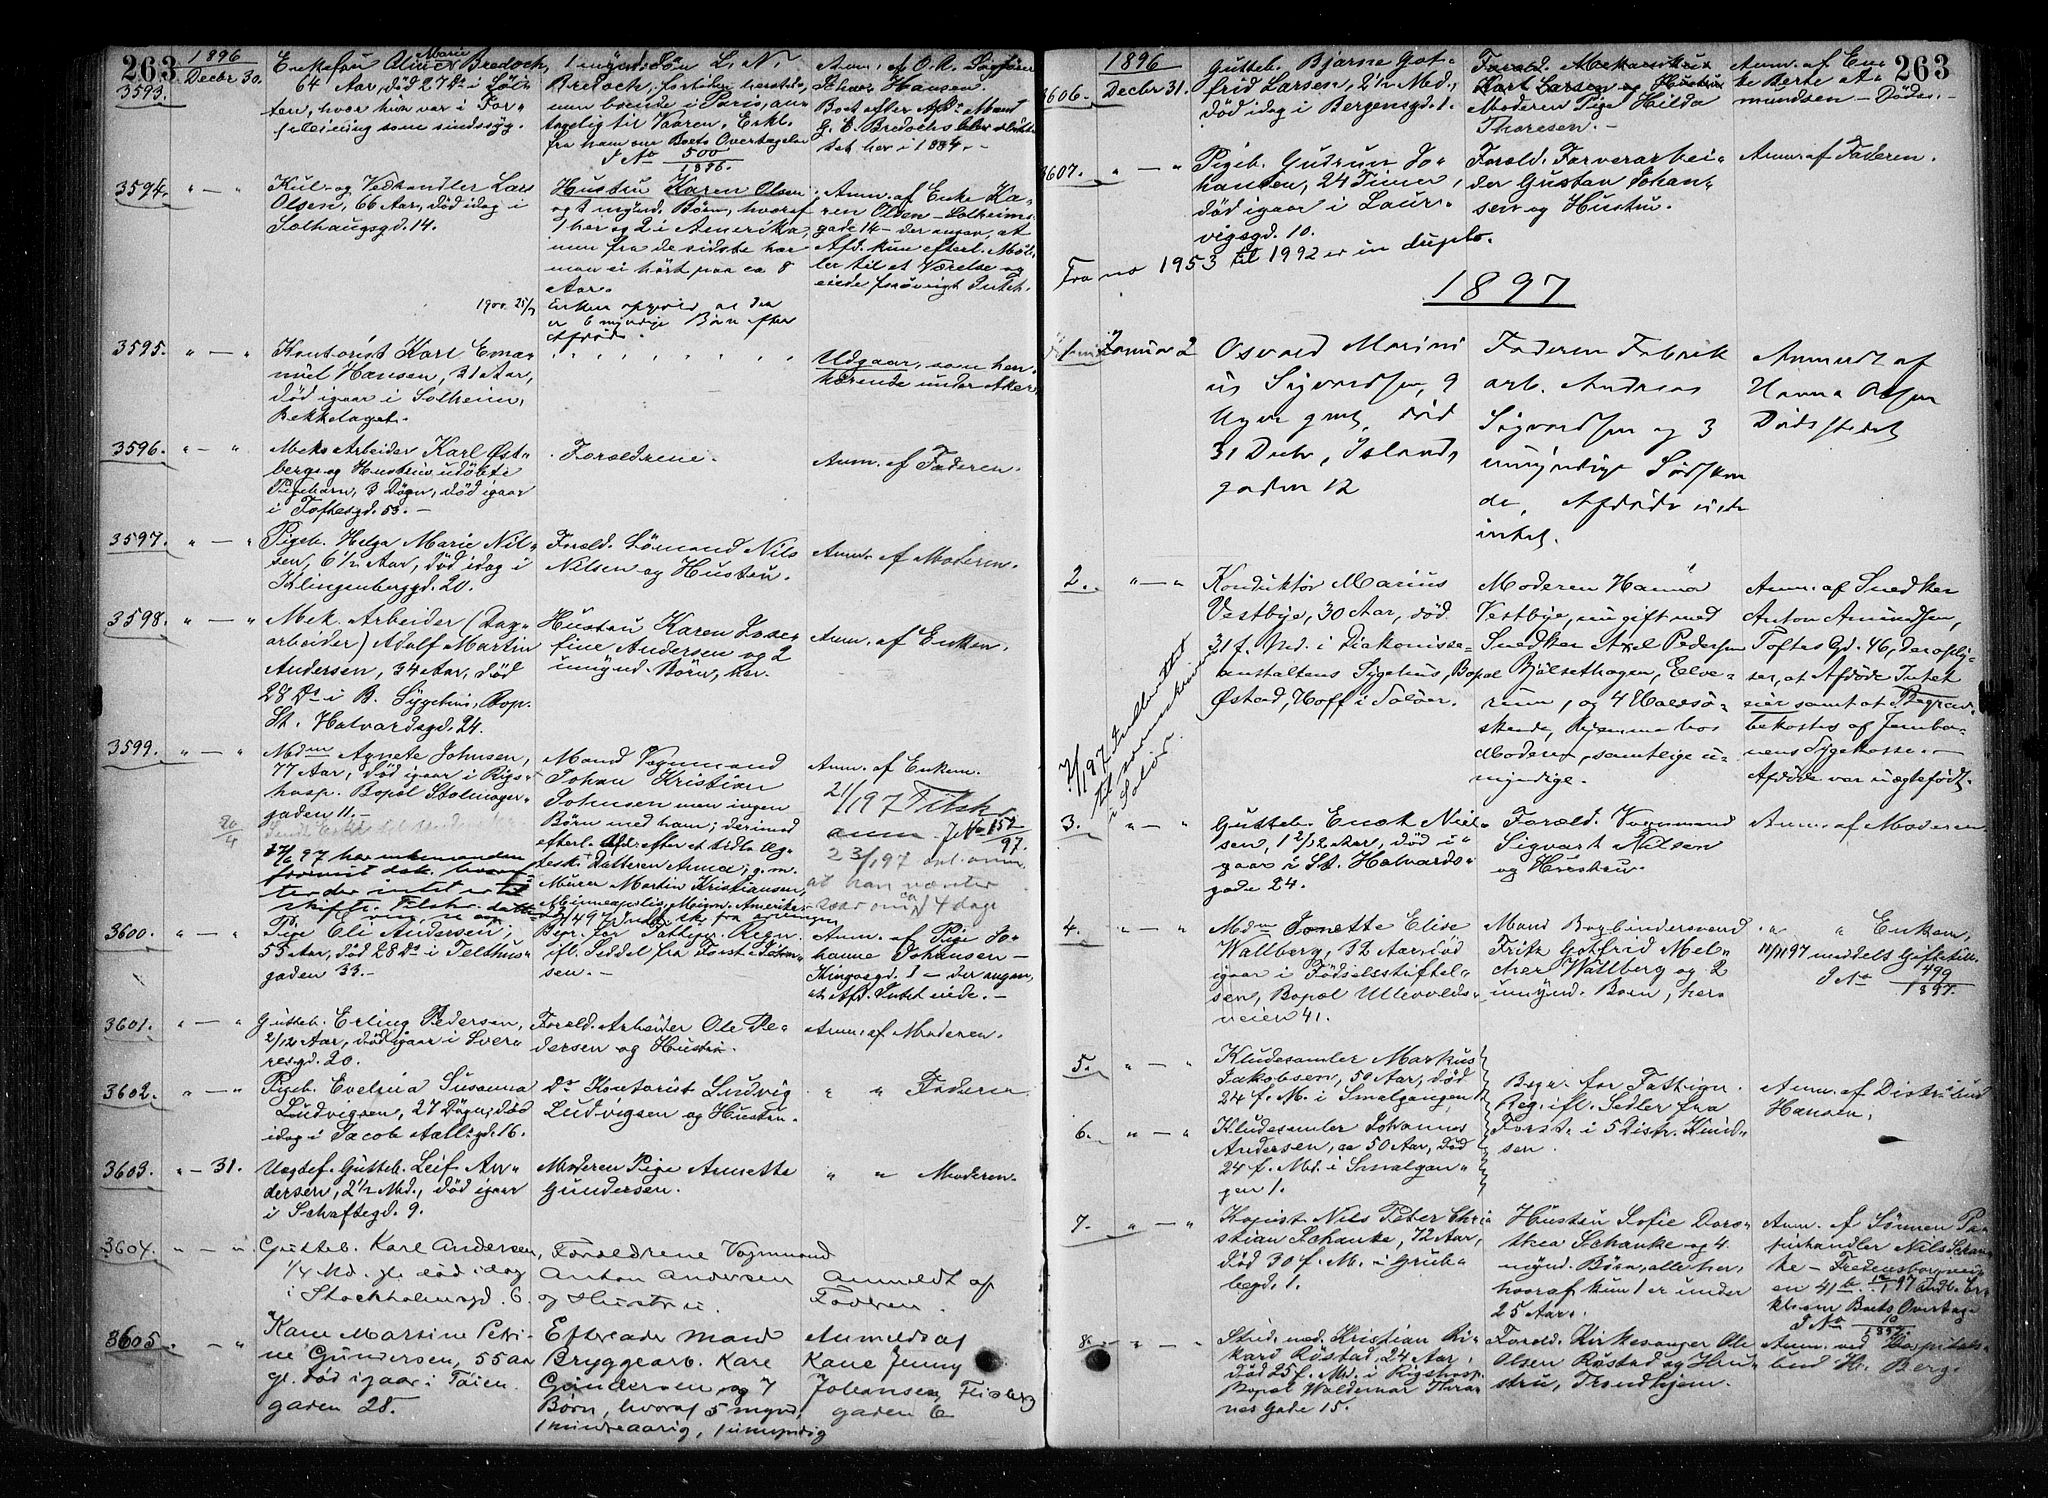 263
1896
Decbr 30.
3593.
Enkefru Oline Marie Bredoch,
64 Aar, død 27 Ds i Løi-
ten, hvor hun var i For-
pleining som sindssyg.
1 mynd. Søn L. N.
Bredoch, fortiden
boende i Paris, an-
tagelig til Vaaren. Erkl.
fra ham om Boets Overtagelse
J No 500/1896.
Anm. af O.R.
Hansen.
Boet efter Afd. Mand
G. E. Bredochs blev sluttet
her i 1884.
3594.
" — "
Kul- og Vedhandler Lars
Olsen, 66 Aar, død idag i
Solhaugsgd. 14.
Hustru Karen Olsen
og 7 mynd. Børn, hvoraf
her og 2 i Amerika,
men fra de sidste har
man ei hørt paa ca 8
Aar.
1900. 25/7
Enken opgivet at der
er 6 myndige Børn efter
Afdøde.
Anm. af Enke Ka-
ren Olsen – Solheims-
gade 14 – der angav, at
Afd. kun efterl. Møb-
ler til et Værelse og
eiede forøvrigt Intet.
3595.
" — "
Kontorist Karl Ema-
nuel Hansen, 31 Aar,
død igaar i Solheim,
Bekkelaget.
" " " " " " "
Udgaar, som hen-
hørende under Aker.
3596.
" — "
Mek. Arbeider Karl Øst-
bergs og Hustrus udøbte
Pigebarn, 3 Døgn, død igaar
i Toftesgd. 53. –
Forældrene.
Anm. af Faderen.
3597.
" — "
Pigeb. Helga Marie Nil-
sen, 6 1/2 Aar, død idag i
Klingenberggd. 20.
Foræld. Sømand Nils
Nilsen og Hustru.
Anm. af Moderen.
3598.
" — "
Mek. Arbeider (Dag-
arbeider) Adolf Martin
Andersen, 34 Aar, død
28 Ds i B. Sygehus, Bop.
St. Halvardsgd. 24.
Hustru Karen Jose-
fine Andersen og 2
umynd. Børn, her.
Anm. af Enken.
3599.
" — "
Mdm Agnete Johnsen,
77 Aar, død igaar i Rigs-
hosp. Bopæl Stolmager-
gaden 11. –
Mand Vognmand
Johan Kristian
Johnsen men ingen
Børn med ham; derimod
efterl. Afd. efter et tidl. Æg-
tesk. Datteren Anna, g. m.
Murer Martin Kristiansen,
Minneapolis, Amerika.
Anm. af Enkem.
21/1 97 Tilsk
anm J No 152/97.
23/1 97
at han venter
svar om ca 14 dage
3600.
" — "
Pige Eli Andersen,
55 Aar, død 28 Ds i Telthus-
gaden 33. –
Begr. for Fattigv. Regn.
ifl. Seddel fra Forst.
sen. –
Anm. af Pige Jo-
hanne Johansen –
Kingosgd. 1 – der angav,
at Afd. Intet eiede. –
3601.
" — "
Gutteb. Erling Pedersen,
2/12 Aar, død igaar i Sver-
resgd. 20.
Foræld. Arbeider Ole Pe-
dersen og Hustru.
Anm. af Moderen.
3602.
" — "
Pigeb. Evelina Susanna
Ludvigsen, 27 Døgn, død
idag i Jacob Aallsgd. 16.
Do Kontorist Ludvig
Ludvigsen og Hustru.
" " Faderen
3603.
" — 31.
Uægtef. Gutteb. Leif An-
dersen, 2 1/2 Md., død igaar
i Schaftegd. 9.
Moderen Pige Annette
Gundersen.
" " Moderen.
3604.
" — "
Gutteb. Karl Andersen,
1/4 Md. gl. død idag
i Stockholmsgd. 6.
Forældrene Vognmand
Anton Andersen
og Hustru.
Anmeldt af
Faderen.
3605.
" — "
Kane Martine Petri-
ne Gundersen, 55 aar
gl. død igaar i Tøien
gaden 28.
Efterlader Mand
Bryggearb. Kare
Gundersen og 7
Børn, hvoraf 5 mynd,
1 mindreaarig, 1 umyndig
Anmeldt af
Kane Jenny
Johansen,
gaden 6
263
1896
3606.
Decbr 31.
Gutteb. Bjarne Got-
frid Larsen, 2 1/2 Md.,
død idag i Bergensgd. 1.
Foræld. Mekanikus
Karl Larsen og Hustru
Moderen Pige Hilda
Thoresen. –
Anm. af En-
ke Berte A-
mundsen – Døds.
3607.
" — "
Pigeb. Gudrun Jo-
hansen, 24 Timer,
død igaar i Laur-
vigsgd. 10.
Foræld. Farverarbei-
der Gustav Johan-
sen og Hustru.
Anm. af Faderen.
Fra no 1953 til 1992 er in duplo.
1897
1
Januar 2
Osvald Marini
us Sigvardsen, 9
Uger gml, død
31 Decbr, Islands
gaden 12
Faderen Fabrik
arb. Andreas
Sigvardsen og 3
umyndige Sødsken
de, Afdøde eiede
intet.
Anmeldt af
Hanna Olsen
Dødsstedet
2.
" — "
Konduktør Marius
Vestbye, 30 Aar, død
31 f. Md. i Diakonisse-
anstaltens Sygehus, Bopæl
Østad, Hoff i Solør.
Moderen Hanna
Vestbye, nu gift med
Snedker Axel Pedersen
Bjølsethagen, Elve-
rum, og 4 Halvsø-
skende, hjemme hos
Moderen, samtlige u-
myndige.
Anm. af Snedker
Anton Amundsen,
Toftes Gd. 46, der oply-
ser, at Afdøde Intet
eier samt at Begrav.
bekostes af Jernba-
nens Sygekasse. –
Afdøde var uægtefødt.
7/1 97
i Solør.
3.
" — "
Gutteb. Enok Niel-
sen, 1 2/12 Aar, død i-
gaar i St. Halvards-
gade 24.
Foræld. Vognmand
Sigvart Nilsen
og Hustru.
Anm. af Moderen.
4.
" — "
Mdm Jonette Elise
Wallberg, 32 Aar, død
igaar i Fødselsstiftel-
sen, Bopæl Ullevolds-
veien 41.
Mand Bogbindersvend
Fritz Gotfrid Mel-
chior Wallberg og 2
umynd. Børn, her.
" " Enkem,
11/11 97 meddelt Giftetill.
J No 499/1897.
5.
" — "
Kludesamler Markus
Jakobsen, 50 Aar, død
24 f. M. i Smalgangen 1
6.
" — "
Kludesamler Johannes
Andersen, ca 50 Aar, død
24 f. Md. i Smalgan-
gen 1.
Begr. for Fattigv.
Reg. ifl. Sedler fra
Forst. i 5 Distr. Knud-
sen.
Anm. af Distriktsbud
Hansen.
7.
" — "
Kopist Nils Peter Chri-
stian Schanke, 72 Aar,
død 30 f. M. i Grub-
begd. 1.
Hustru Sofie Doro-
thea Schanke og 4
mynd. Børn, alle her,
hvoraf kun 1 er under
25 Aar.
Anm. af Sønnen Pa-
pirhandler Nils Schan-
ke – Fredensborgvei-
en 41 b. 12/1 97 indk. Er-
kl. om Boets Overtag.
J No 10/1897.
8.
" — "
Stud. med. Kristian Ri-
kard Røstad, 24 Aar,
død 25 f. Md. i Rigshosp.
Bopæl Waldemar Thra-
nes Gade 15.
Foræld. Kirkesanger Ole
Olsen Røstad og Hu-
stru, Trondhjem.
Anm. ved Hospitals-
bud H. Berg.